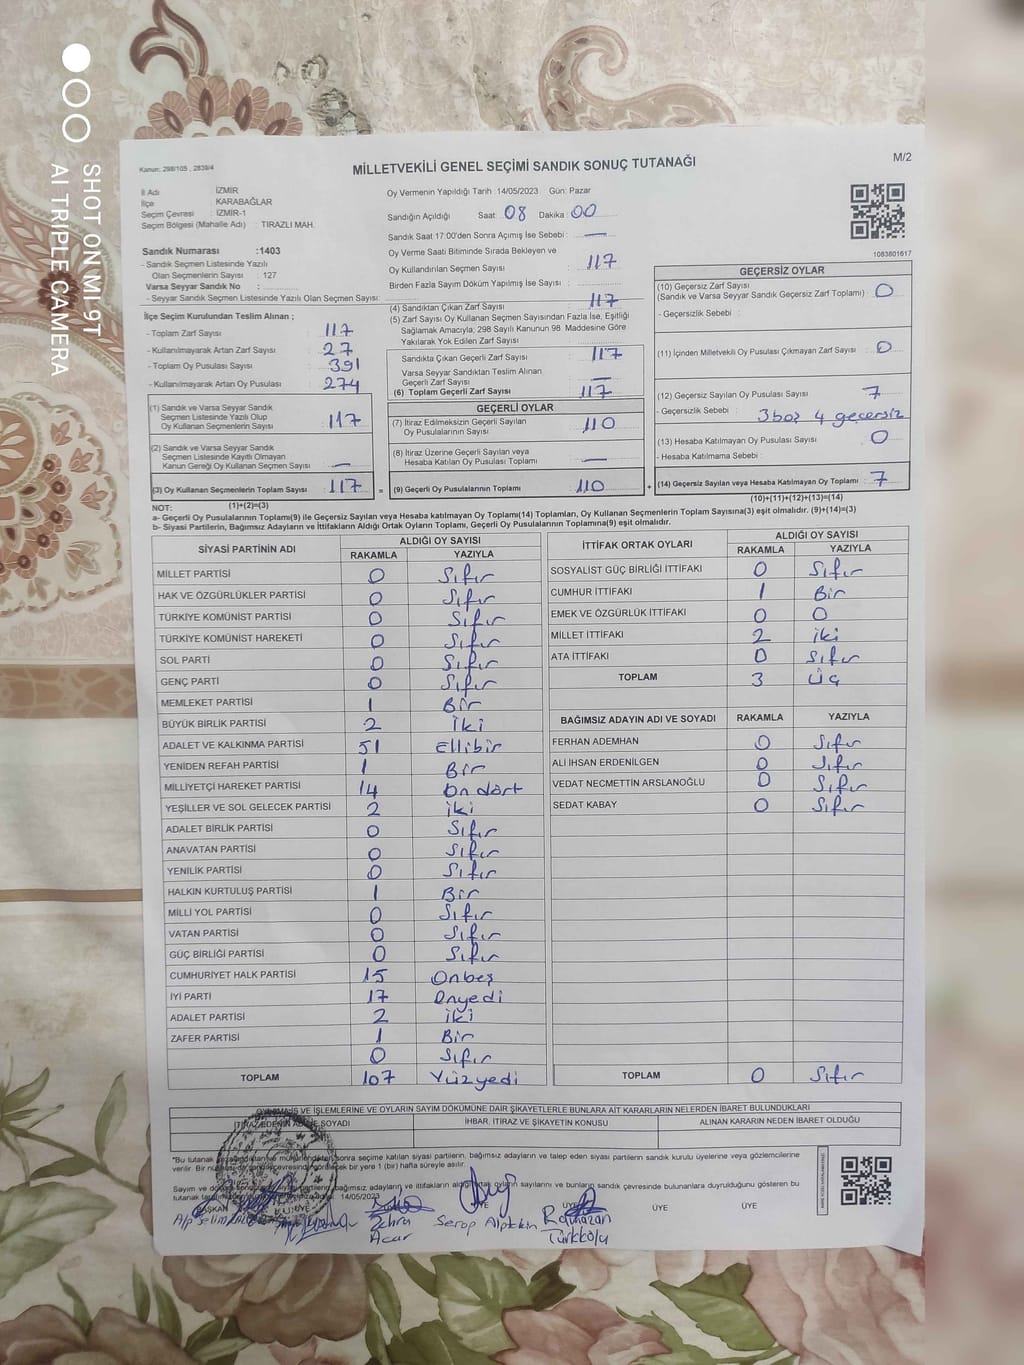 SHOT ON MI 9T
AI TRIPLE CAMERA
Kanun: 298/105 , 2839/4
MİLLETVEKİLİ GENEL SEÇİMİ SANDIK SONUÇ TUTANAĞI
M/2
İl Adı : İZMİR
İlçe : KARABAĞLAR
Seçim Çevresi : İZMİR-1
Seçim Bölgesi (Mahalle Adı) : TIRAZLI MAH.
Sandık Numarası :1403
- Sandık Seçmen Listesinde Yazılı
Olan Seçmenlerin Sayısı : 127
Varsa Seyyar Sandık No :
- Seyyar Sandık Seçmen Listesinde Yazılı Olan Seçmen Sayısı:
İlçe Seçim Kurulundan Teslim Alınan ;
- Toplam Zarf Sayısı : 117
- Kullanılmayarak Artan Zarf Sayısı : 27
- Toplam Oy Pusulası Sayısı : 391
- Kullanılmayarak Artan Oy Pusulası : 274
(1) Sandık ve Varsa Seyyar Sandık
Seçmen Listesinde Yazılı Olup
Oy Kullanan Seçmenlerin Sayısı : 117
(2) Sandık ve Varsa Seyyar Sandık
Seçmen Listesinde Kayıtlı Olmayan
Kanun Gereği Oy Kullanan Seçmen Sayısı : —
(3) Oy Kullanan Seçmenlerin Toplam Sayısı : 117
(1)+(2)=(3)
Oy Vermenin Yapıldığı Tarih :14/05/2023 Gün: Pazar
Sandığın Açıldığı Saat : 08 Dakika : 00
Sandık Saat 17:00'den Sonra Açımış İse Sebebi : —
Oy Verme Saati Bitiminde Sırada Bekleyen ve
Oy Kullandırılan Seçmen Sayısı : 117
Birden Fazla Sayım Döküm Yapılmış İse Sayısı :
(4) Sandıktan Çıkan Zarf Sayısı : 117
(5) Zarf Sayısı Oy Kullanan Seçmen Sayısından Fazla İse, Eşitliği
Sağlamak Amacıyla; 298 Sayılı Kanunun 98. Maddesine Göre
Yakılarak Yok Edilen Zarf Sayısı :
Sandıkta Çıkan Geçerli Zarf Sayısı : 117
Varsa Seyyar Sandıktan Teslim Alınan
Geçerli Zarf Sayısı : —
(6) Toplam Geçerli Zarf Sayısı : 117
GEÇERLİ OYLAR
(7) İtiraz Edilmeksizin Geçerli Sayılan
Oy Pusulalarının Sayısı : 110
(8) İtiraz Üzerine Geçerli Sayılan veya
Hesaba Katılan Oy Pusulası Toplamı : —
= (9) Geçerli Oy Pusulalarının Toplamı : 110
1083801617
GEÇERSİZ OYLAR
(10) Geçersiz Zarf Sayısı
(Sandık ve Varsa Seyyar Sandık Geçersiz Zarf Toplamı) : 0
- Geçersizlik Sebebi :
(11) İçinden Milletvekili Oy Pusulası Çıkmayan Zarf Sayısı : 0
(12) Geçersiz Sayılan Oy Pusulası Sayısı : 7
- Geçersizlik Sebebi : 3 boş 4 geçersiz
(13) Hesaba Katılmayan Oy Pusulası Sayısı : 0
- Hesaba Katılmama Sebebi :
+ (14) Geçersiz Sayılan veya Hesaba Katılmayan Oy Toplamı : 7
(10)+(11)+(12)+(13)=(14)
NOT:
a- Geçerli Oy Pusulalarının Toplamı(9) ile Geçersiz Sayılan veya Hesaba Katılmayan Oy Toplamı(14) Toplamları, Oy Kullanan Seçmenlerin Toplam Sayısına(3) eşit olmalıdır. (9)+(14)=(3)
b- Siyasi Partilerin, Bağımsız Adayların ve İttifakların Aldığı Ortak Oyların Toplamı, Geçerli Oy Pusulalarının Toplamına(9) eşit olmalıdır.
SİYASİ PARTİNİN ADI ALDIĞI OY SAYISI
RAKAMLA YAZIYLA
MİLLET PARTİSİ 0 Sıfır
HAK VE ÖZGÜRLÜKLER PARTİSİ 0 Sıfır
TÜRKİYE KOMÜNİST PARTİSİ 0 Sıfır
TÜRKİYE KOMÜNİST HAREKETİ 0 Sıfır
SOL PARTİ 0 Sıfır
GENÇ PARTİ 0 Sıfır
MEMLEKET PARTİSİ 1 Bir
BÜYÜK BİRLİK PARTİSİ 2 İki
ADALET VE KALKINMA PARTİSİ 51 Ellibir
YENİDEN REFAH PARTİSİ 1 Bir
MİLLİYETÇİ HAREKET PARTİSİ 14 Ondört
YEŞİLLER VE SOL GELECEK PARTİSİ 2 iki
ADALET BİRLİK PARTİSİ 0 Sıfır
ANAVATAN PARTİSİ 0 Sıfır
YENİLİK PARTİSİ 0 Sıfır
HALKIN KURTULUŞ PARTİSİ 1 Bir
MİLLİ YOL PARTİSİ 0 Sıfır
VATAN PARTİSİ 0 Sıfır
GÜÇ BİRLİĞİ PARTİSİ 0 Sıfır
CUMHURİYET HALK PARTİSİ 15 Onbeş
İYİ PARTİ 17 Onyedi
ADALET PARTİSİ 2 iki
ZAFER PARTİSİ 1 Bir
0 Sıfır
TOPLAM 107 Yüzyedi
İTTİFAK ORTAK OYLARI ALDIĞI OY SAYISI
RAKAMLA YAZIYLA
SOSYALİST GÜÇ BİRLİĞİ İTTİFAKI 0 Sıfır
CUMHUR İTTİFAKI 1 Bir
EMEK VE ÖZGÜRLÜK İTTİFAKI 0 0
MİLLET İTTİFAKI 2 iki
ATA İTTİFAKI 0 Sıfır
TOPLAM 3 Üç
BAĞIMSIZ ADAYIN ADI VE SOYADI RAKAMLA YAZIYLA
FERHAN ADEMHAN 0 Sıfır
ALİ İHSAN ERDENİLGEN 0 Sıfır
VEDAT NECMETTİN ARSLANOĞLU 0 Sıfır
SEDAT KABAY 0 Sıfır
TOPLAM 0 Sıfır
İŞLEMLERİNE VE OYLARIN SAYIM DÖKÜMÜNE DAİR ŞİKAYETLERLE BUNLARA AİT KARARLARIN NELERDEN İBARET BULUNDUKLARI
İTİRAZ EDENİN ADI VE SOYADI İHBAR, İTİRAZ VE ŞİKAYETİN KONUSU ALINAN KARARIN NEDEN İBARET OLDUĞU
*Bu tutanak sonra seçime katılan siyasi partilerin, bağımsız adayların ve talep eden siyasi partilerin sandık kurulu üyelerine veya gözlemcilerine
verilir. Bir bir yere 1 (bir) hafta süreyle asılır.
Sayım ve bağımsız adayların ve ittifakların aldığı oyların sayılarını ve bunların sandık çevresinde bulunanlara duyrulduğunu gösteren bu
tutanak 14/05/2023
BAŞKAN ÜYE ÜYE ÜYE ÜYE ÜYE
Zehra
Acar
Serop Alptekin
Ramazan
Türkkolu